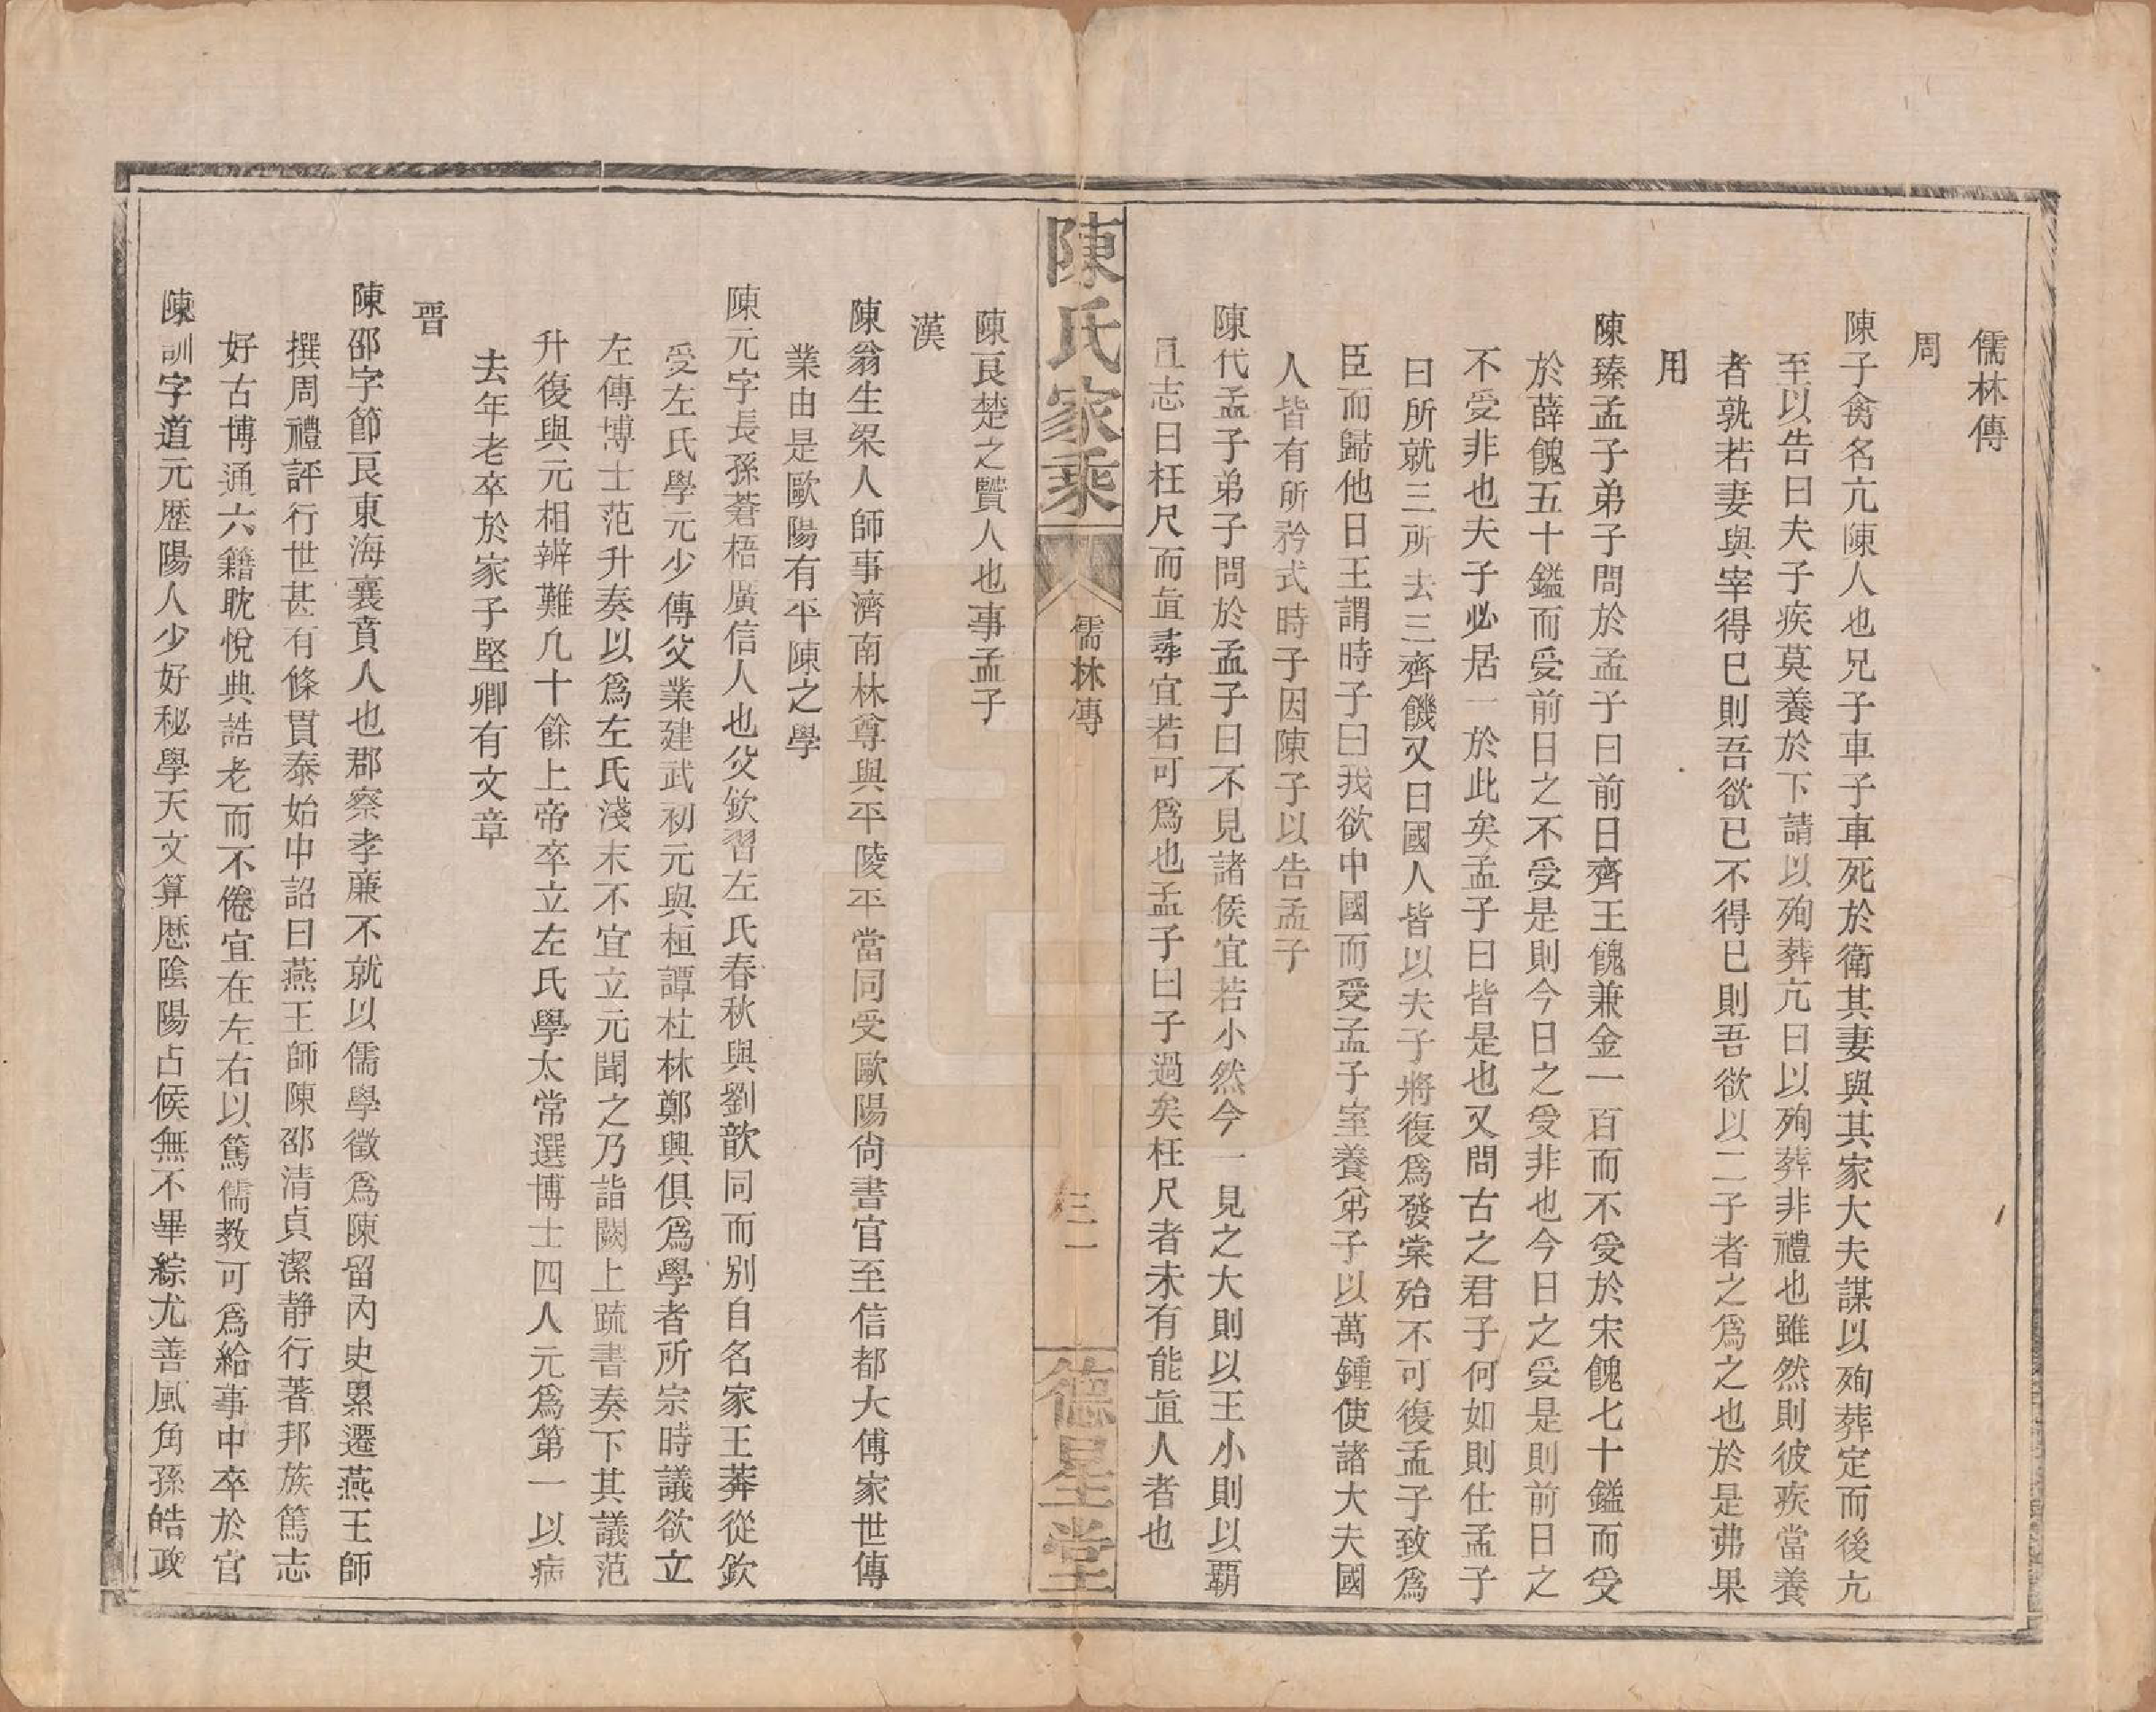 儒林傳
周
陳子禽名亢陳人也兄子車子車死於衛其妻與其家大夫謀以殉葬定而後亢
至以告曰夫子疾莫養於下請以殉葬亢曰以殉葬非禮也雖然則彼疾當養
者孰若妻與宰得已則吾欲已不得已則吾欲以二子者之爲之也於是弗果
用
陳臻孟子弟子問於孟子曰前日齊王餽兼金一百而不受於宋餽七十鎰而受
於薛餽五十鎰而受前日之不受是則今日之受非也今日之受是則前日之
不受非也夫子必居一於此矣孟子曰皆是也又問古之君子何如則仕孟子
曰所就三所去三齊饑又曰國人皆以夫子將復爲發棠殆不可復孟子致爲
臣而歸他日王謂時子曰我欲中國而受孟子室養弟子以萬鍾使諸大夫國
人皆有所矜式時子因陳子以告孟子
陳代孟子弟子問於孟子曰不見諸侯宜若小然今一見之大則以王小則以覇
且志曰枉尺而直尋宜若可爲也孟子曰子過矣枉尺者未有能直人者也
陳氏家乘
儒林傳
三一
德星堂
陳良楚之賢人也事孟子
漢
陳翁生梁人師事濟南林尊與平陵平當同受歐陽尙書官至信都大傅家世傳
業由是歐陽有平陳之學
陳元字長孫蒼梧廣信人也父欽習左氏春秋與劉歆同而別自名家王莽從欽
受左氏學元少傳父業建武初元與桓譚杜林鄭興俱爲學者所宗時議欲立
左傳博士范升奏以爲左氏淺末不宜立元聞之乃詣闕上疏書奏下其議范
升復與元相辨難凡十餘上帝卒立左氏學太常選博士四人元爲第一以病
去年老卒於家子堅卿有文章
晋
陳邵字節良東海襄賁人也郡察孝廉不就以儒學徵爲陳留內史累遷燕王師
撰周禮評行世甚有條貫泰始中詔曰燕王師陳邵清貞潔静行著邦族篤志
好古博通六籍耽悅典誥老而不倦宜在左右以篤儒教可爲給事中卒於官
陳訓字道元歷陽人少好秘學天文算厯陰陽占候無不畢綜尤善風角孫皓政